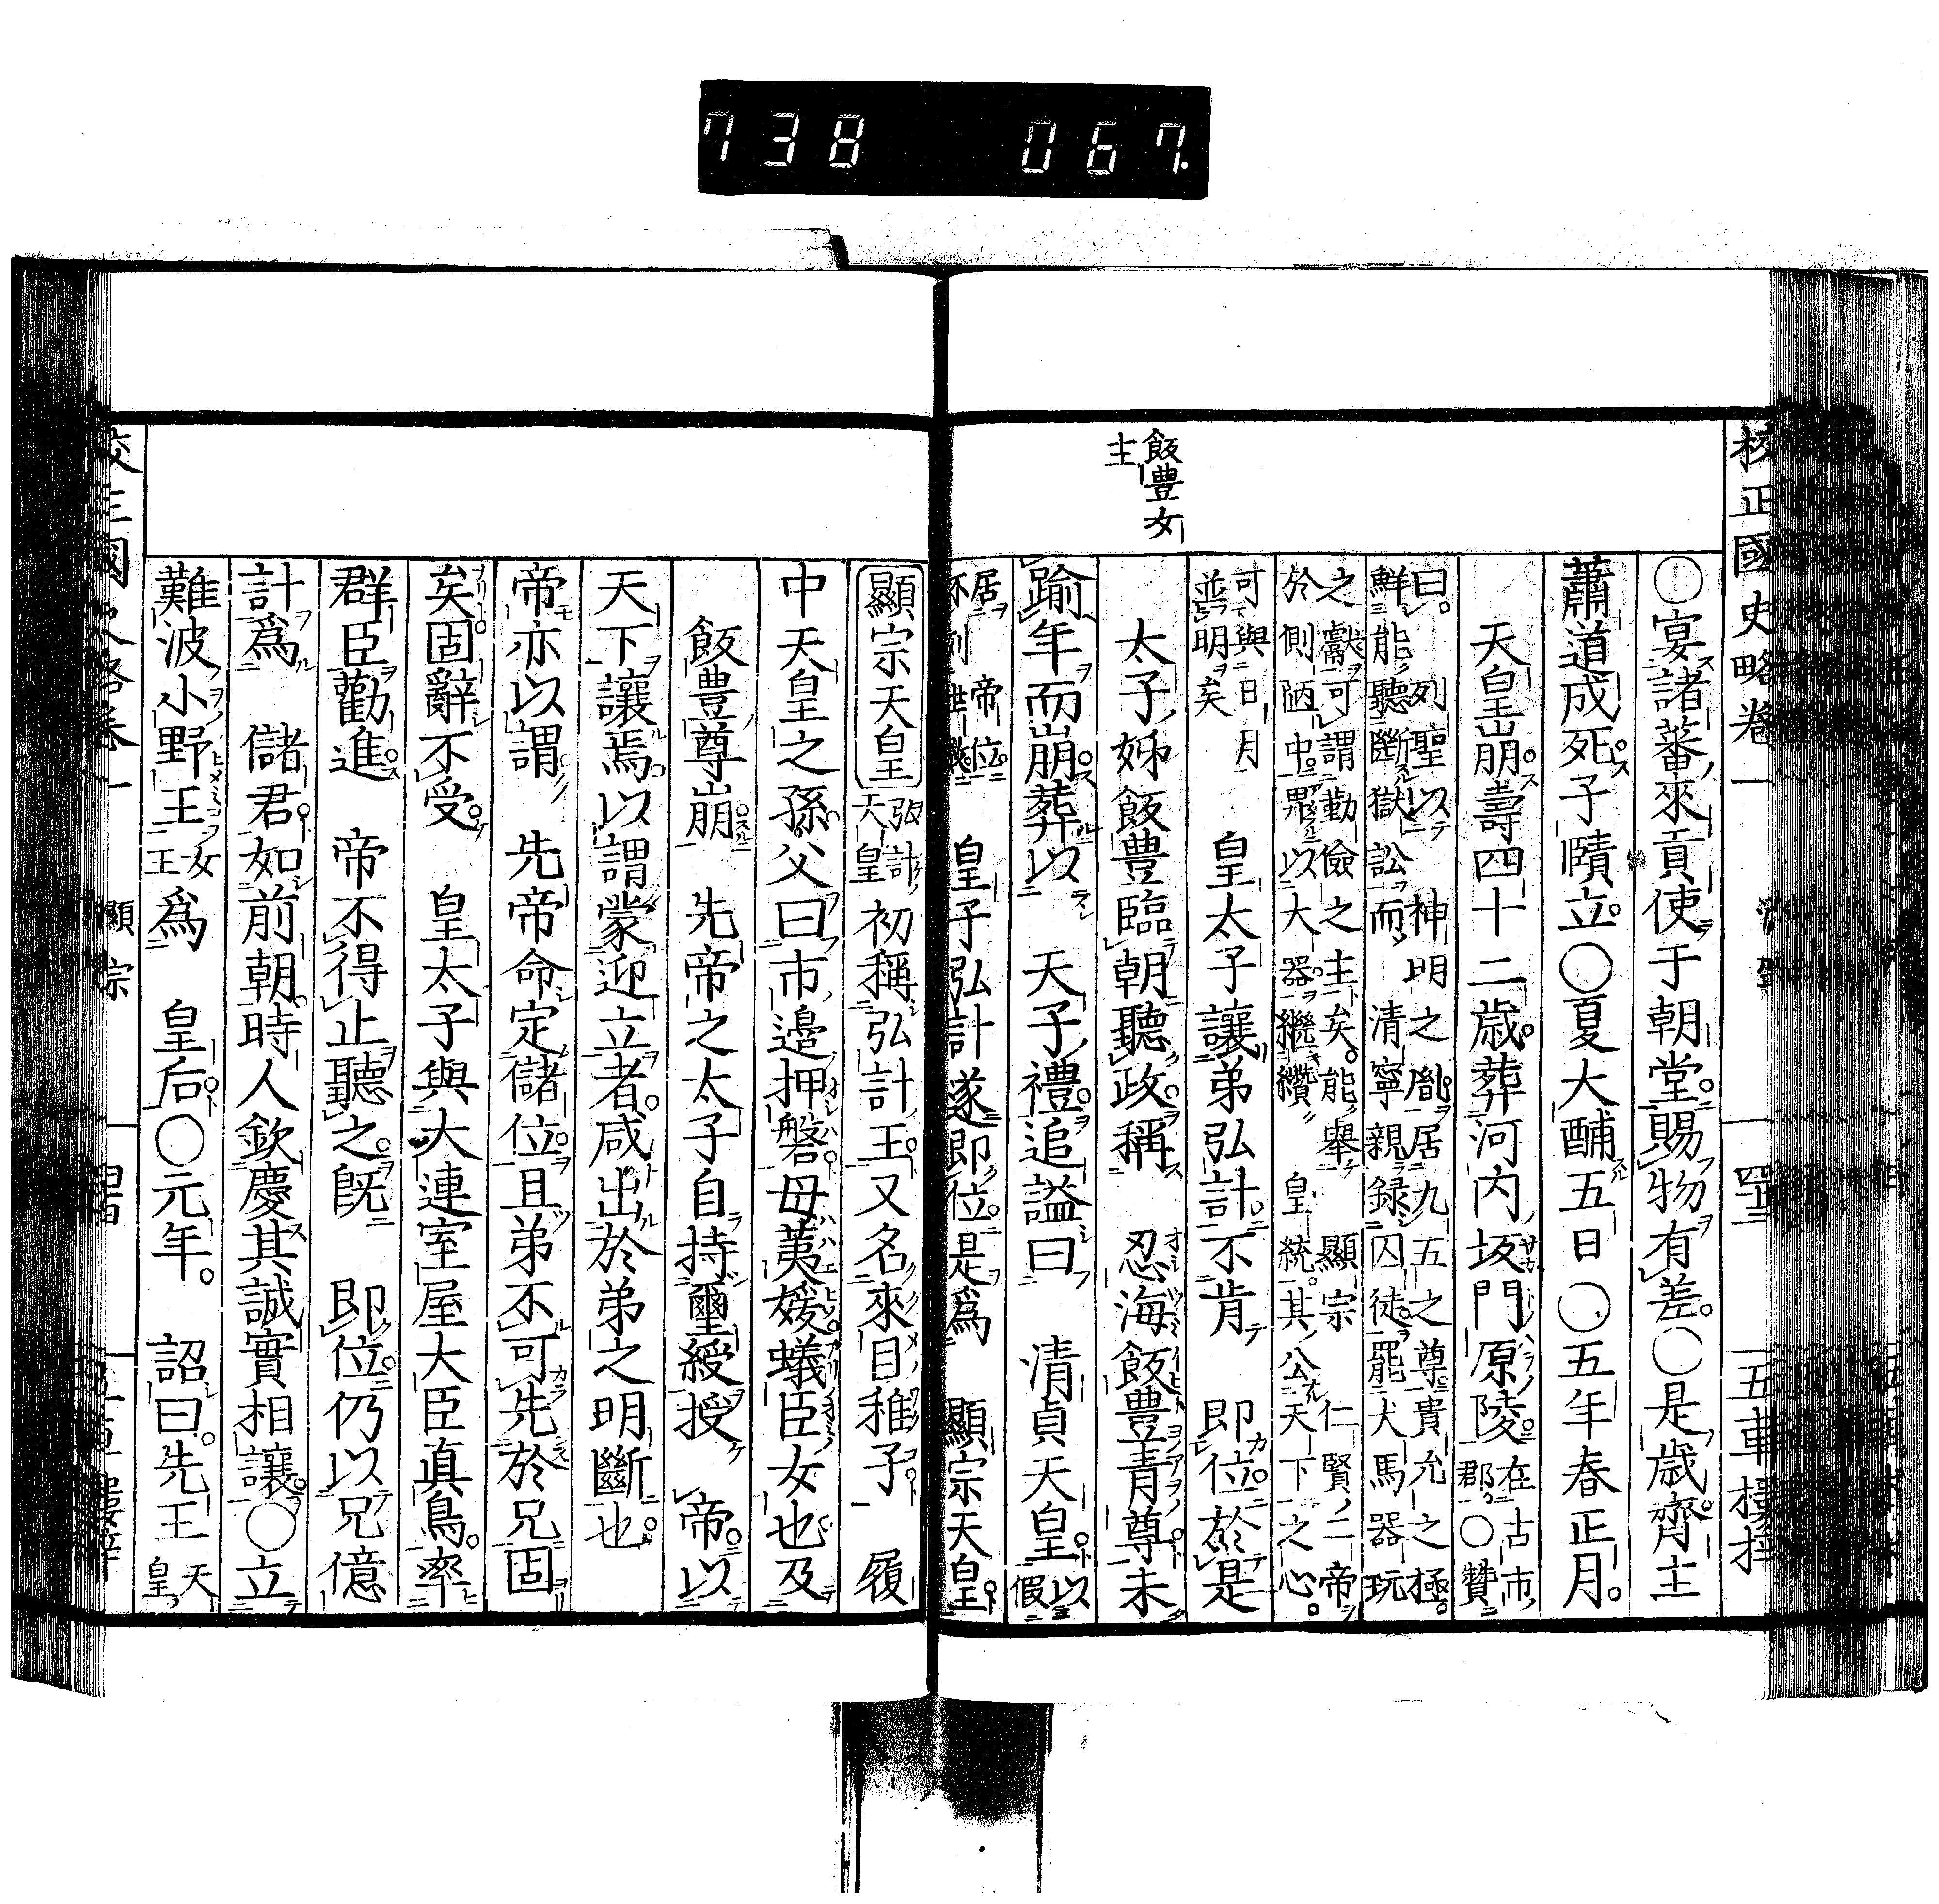 738 067.
校正國史略卷一
五車樓
飯豊女
主
〇宴諸蕃來貢使于朝堂。賜物有差。〇是歳。齊主
蕭道成死子賾立。〇夏大酺五日〇五年春正月。
天皇崩壽四十二歳。葬河内坂門原陵在古市郡〇贊
曰。列聖以神明之胤居九五之尊貴允之極。
鮮能聽斷獄訟而清寧親録囚徒罷犬馬器玩
之獻可謂勤儉之主矣。能舉顯宗仁賢二帝
於側陋中畀以大器。繼纘皇統。其公天下之心。
可與日月
並明矣
皇太子讓弟弘計不肯即位於是
太子姊飯豊臨朝聽政稱忍海飯豊青尊未
踰年而崩葬以天子禮追謚曰清貞天皇以假
居帝位
不列世數
皇子弘計遂即位是爲顯宗天皇
顯宗天皇弘計天皇初稱弘計王又名來目稚子履
中天皇之孫父曰市邊押磐母荑媛蟻臣女也及
飯豊尊崩先帝之太子自持璽綬授帝以
天下讓焉以謂蒙迎立者咸出於弟之明斷也
帝亦以謂先帝命定儲位且弟不可先於兄固
矣固辭不受皇太子與大連室屋大臣真鳥。率
群臣勸進帝不得止聽之既即位仍以兄億
計爲儲君如前朝時人欽慶其誠實相讓〇立
難波小野王女王爲皇后〇元年。詔曰。先王天皇
顯宗